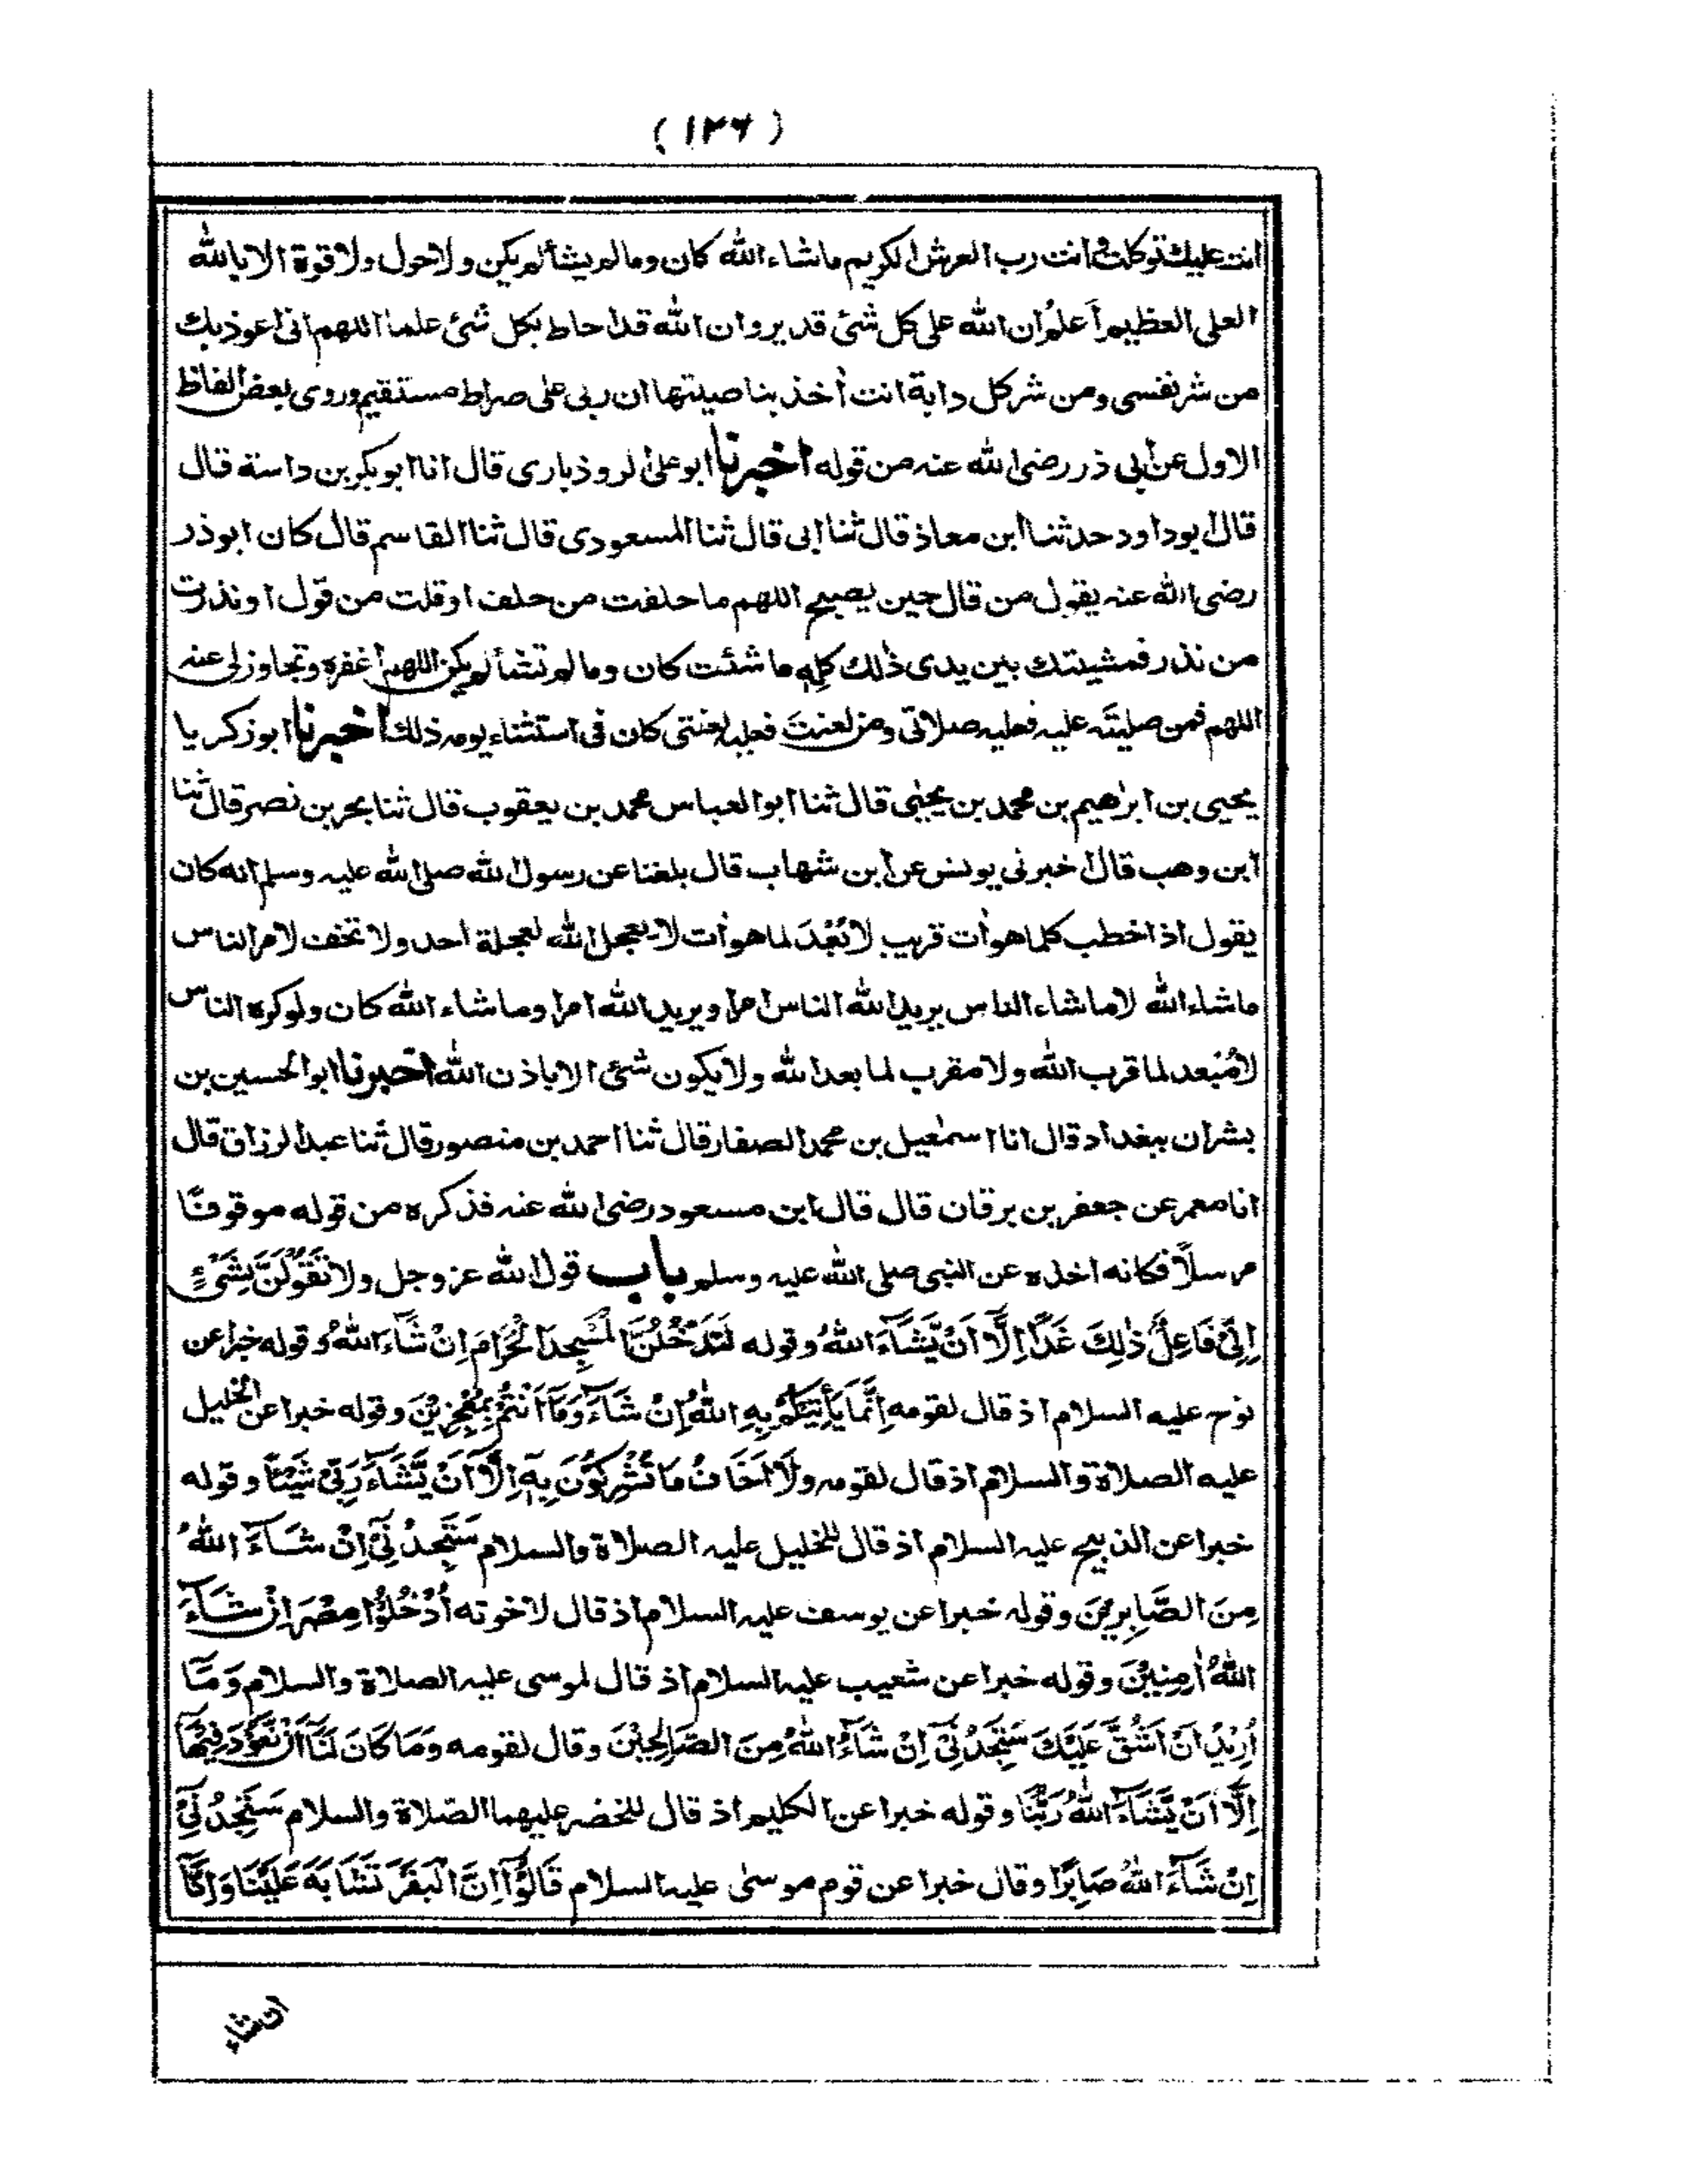 (١٢٦)
انت عليك توكلت وانت رب العرش الكريم ماشاء الله كان ومالم يشألم يكن ولاحول ولاقوة الابالله
العلى العظيم أعلم ان الله على كل شئ قدير وان الله قد احاط بكل شئ علما اللهم انى اعوذ بك
من شر نفسى ومن شر كل دابة انت أخذ بناصيتها ان ربى على صراط مستقيم وروى بعض الفاظ
الاول عن ابى ذر رضى الله عنه من قوله اخبرنا ابو على الروذبارى قال انا ابو بكر بن داسة قال
قال ابوداود حدثنا ابن معاذ قال ثنا ابى قال ثنا المسعودى قال ثنا القاسم قال كان ابوذر
رضى الله عنه يقول من قال حين يصبح اللهم ما حلفت من حلف او قلت من قول او نذرت
من نذر فمشيتك بين يدى ذٰلك كلِه ما شئت كان وما لم تشألم يكن اللهم اغفره وتجاوز لى عنه
اللهم فمن صليتَ عليه فعليه صلاتى ومن لعنتَ فعليه لعنتى كان فى استثناء يومه ذلك اخبرنا ابو زكريا
يحيى بن ابرٰهيم بن محمد بن يحيٰى قال ثنا ابوالعباس محمد بن يعقوب قال ثنا بحر بن نصر قال ثنا
ابن وهب قال اخبرنى يونس عن ابن شهاب قال بلغنا عن رسول الله صلى الله عليه وسلم انه كان
يقول اذا خطب كلما هو اٰت قريب لا بُعْدَ لما هو اٰت لا يعجل الله لعجلة احد ولا تخف لامر الناس
ماشاء الله لاماشاء الناس يريد الله الناس امرا ويريد الله امرا وماشاء الله كان ولوكره الناس
لامُبعد لما قرب الله ولامقرب لما بعد الله ولايكون شئ الا باذن الله اخبرنا ابو الحسين بن
بشران ببغداد قال انا اسمٰعيل بن محمد الصفار قال ثنا احمد بن منصور قال ثنا عبد الرزاق قال
انا معمر عن جعفر بن برقان قال قال ابن مسعود رضى الله عنه فذكره من قوله موقوفًا
مرسلًا فكانه اخذه عن النبى صلى الله عليه وسلم باب قول الله عز وجل ولا تَقُوْلَنَّ لِشَىْءٍ
اِنِّىْ فَاعِلٌ ذٰلِكَ غَدًا اِلَّا اَنْ يَّشَآءَ اللهُ وقوله لَتَدْخُلُنَّ الْمَسْجِدَ الْحَرَامَ اِنْ شَآءَ اللهُ وقوله خبرا عن
نوح عليه السلام اذ قال لقومه اِنَّمَا يَأْتِيْكُمْ بِهِ اللهُ اِنْ شَآءَ وَمَآ اَنْتُمْ بِمُعْجِزِيْنَ وقوله خبرا عن الخليل
عليه الصلاة والسلام اذ قال لقومه ولَآ اَخَافُ مَا تُشْرِكُوْنَ بِهٖٓ اِلَّآ اَنْ يَّشَآءَ رَبِّىْ شَيْئًا وقوله
خبرا عن الذبيح عليه السلام اذ قال للخليل عليه الصلاة والسلام سَتَجِدُنِىْٓ اِنْ شَآءَ اللهُ
مِنَ الصَّابِرِيْنَ وقوله خبرا عن يوسف عليه السلام اذ قال لاخوته اُدْخُلُوْا مِصْرَ اِنْ شَآءَ
اللهُ اٰمِنِيْنَ وقوله خبرا عن شعيب عليه السلام اذ قال لموسى عليه الصلاة والسلام وَمَآ
اُرِيْدُ اَنْ اَشُقَّ عَلَيْكَ سَتَجِدُنِىْٓ اِنْ شَآءَ اللهُ مِنَ الصَّالِحِيْنَ وقال لقومه وَمَا كَانَ لَنَآ اَنْ نَّعُوْدَ فِيْهَآ
اِلَّآ اَنْ يَّشَآءَ اللهُ رَبُّنَا وقوله خبرا عن الكليم اذ قال للخضر عليهما الصّلاة والسلام سَتَجِدُنِىْٓ
اِنْ شَآءَ اللهُ صَابِرًا وقال خبرا عن قوم موسٰى عليه السلام قَالُوْٓا اِنَّ الْبَقَرَ تَشَابَهَ عَلَيْنَا وَاِنَّآ
ان شاء